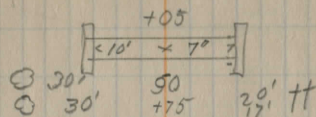 +05
10' 7'
30' 50
30' +75 20'
17'